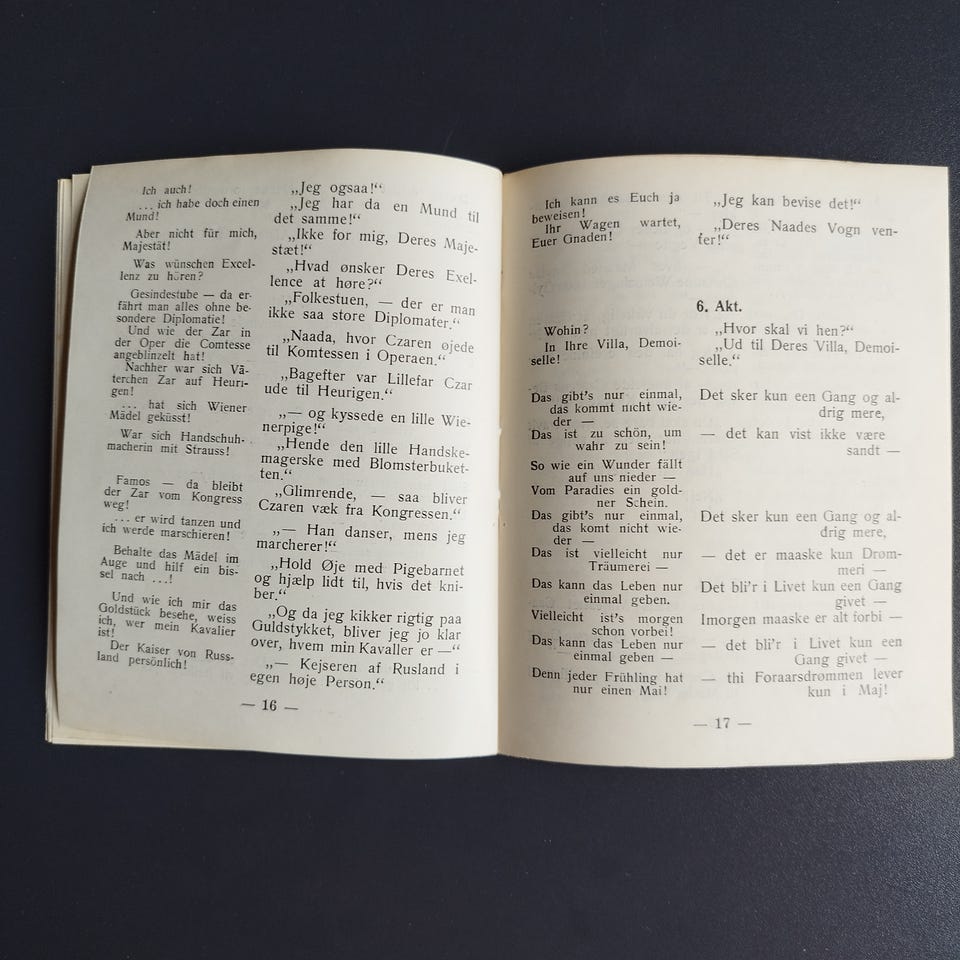 Ich auch!
... ich habe doch einen
Mund!
Aber nicht für mich,
Majestät!
Was wünschen Excel-
lenz zu hören?
Gesindestube — da er-
fährt man alles ohne be-
sondere Diplomatie!
Und wie der Zar in
der Oper die Comtesse
angeblinzelt hat!
Nachher war sich Vä-
terchen Zar auf Heuri-
gen!
... hat sich Wiener
Mädel geküsst!
War sich Handschuh-
macherin mit Strauss!
Famos — da bleibt
der Zar vom Kongress
weg!
... er wird tanzen und
ich werde marschieren!
Behalte das Mädel im
Auge und hilf ein bis-
sel nach ...!
Und wie ich mir das
Goldstück besehe, weiss
ich, wer mein Kavalier
ist!
Der Kaiser von Russ-
land persönlich!
„Jeg ogsaa!“
„Jeg har da en Mund til
det samme!“
„Ikke for mig, Deres Maje-
stæt!“
„Hvad ønsker Deres Exel-
lence at høre?“
„Folkestuen, — der er man
ikke saa store Diplomater.“
„Naada, hvor Czaren øjede
til Komtessen i Operaen.“
„Bagefter var Lillefar Czar
ude til Heurigen.“
„— og kyssede en lille Wie-
nerpige!“
„Hende den lille Handske-
magerske med Blomsterbuket-
ten.“
„Glimrende, — saa bliver
Czaren væk fra Kongressen.“
„— Han danser, mens jeg
marcherer!“
„Hold Øje med Pigebarnet
og hjælp lidt til, hvis det kni-
ber.“
„Og da jeg kikker rigtig paa
Guldstykket, bliver jeg jo klar
over, hvem min Kavaller er —“
„— Kejseren af Rusland i
egen høje Person.“
— 16 —
Ich kann es Euch ja
beweisen!
Ihr Wagen wartet,
Euer Gnaden!
„Jeg kan bevise det!“
„Deres Naades Vogn ven-
ter!“
6. Akt.
Wohin?
In Ihre Villa, Demoi-
selle!
„Hvor skal vi hen?“
„Ud til Deres Villa, Demoi-
selle.“
Das gibt's nur einmal,
das kommt nicht wie-
der —
Das ist zu schön, um
wahr zu sein!
So wie ein Wunder fällt
auf uns nieder —
Vom Paradies ein gold-
ner Schein.
Das gibt's nur einmal,
das komt nicht wie-
der —
Das ist vielleicht nur
Träumerei —
Das kann das Leben nur
einmal geben.
Vielleicht ist's morgen
schon vorbei!
Das kann das Leben nur
einmal geben —
Denn jeder Frühling hat
nur einen Mai!
Det sker kun een Gang og al-
drig mere,
— det kan vist ikke være
sandt —
Det sker kun een Gang og al-
drig mere,
— det er maaske kun Drøm-
meri —
Det bli'r i Livet kun een Gang
givet —
Imorgen maaske er alt forbi —
— det bli'r i Livet kun een
Gang givet —
— thi Foraarsdrømmen lever
kun i Maj!
— 17 —